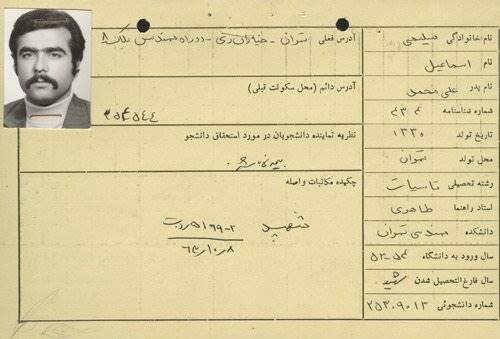 نام خانوادگی
نام اسماعیل
نام پدر علی محمد
شماره شناسنامه ۴۳۴
تاریخ تولد ۱۳۳۰
محل تولد تهران
رشته تحصیلی تاسیسات
استاد راهنما طاهری
دانشکده مهندسی تهران
سال ورود به دانشگاه ۵۴-۵۳
سال فارغ التحصیل شدن شهید
شماره دانشجوئی ۲۵۳۰۹۰۱۳
آدرس فعلی تهران - خیابان ری - دوراه مهندس پلاک ۸
آدرس دائم (محل سکونت قبلی)
۳۵۴۵۴۴
نظریه نماینده دانشجویان در مورد استحقاق دانشجو
چکیده مکاتبات واصله
شهید